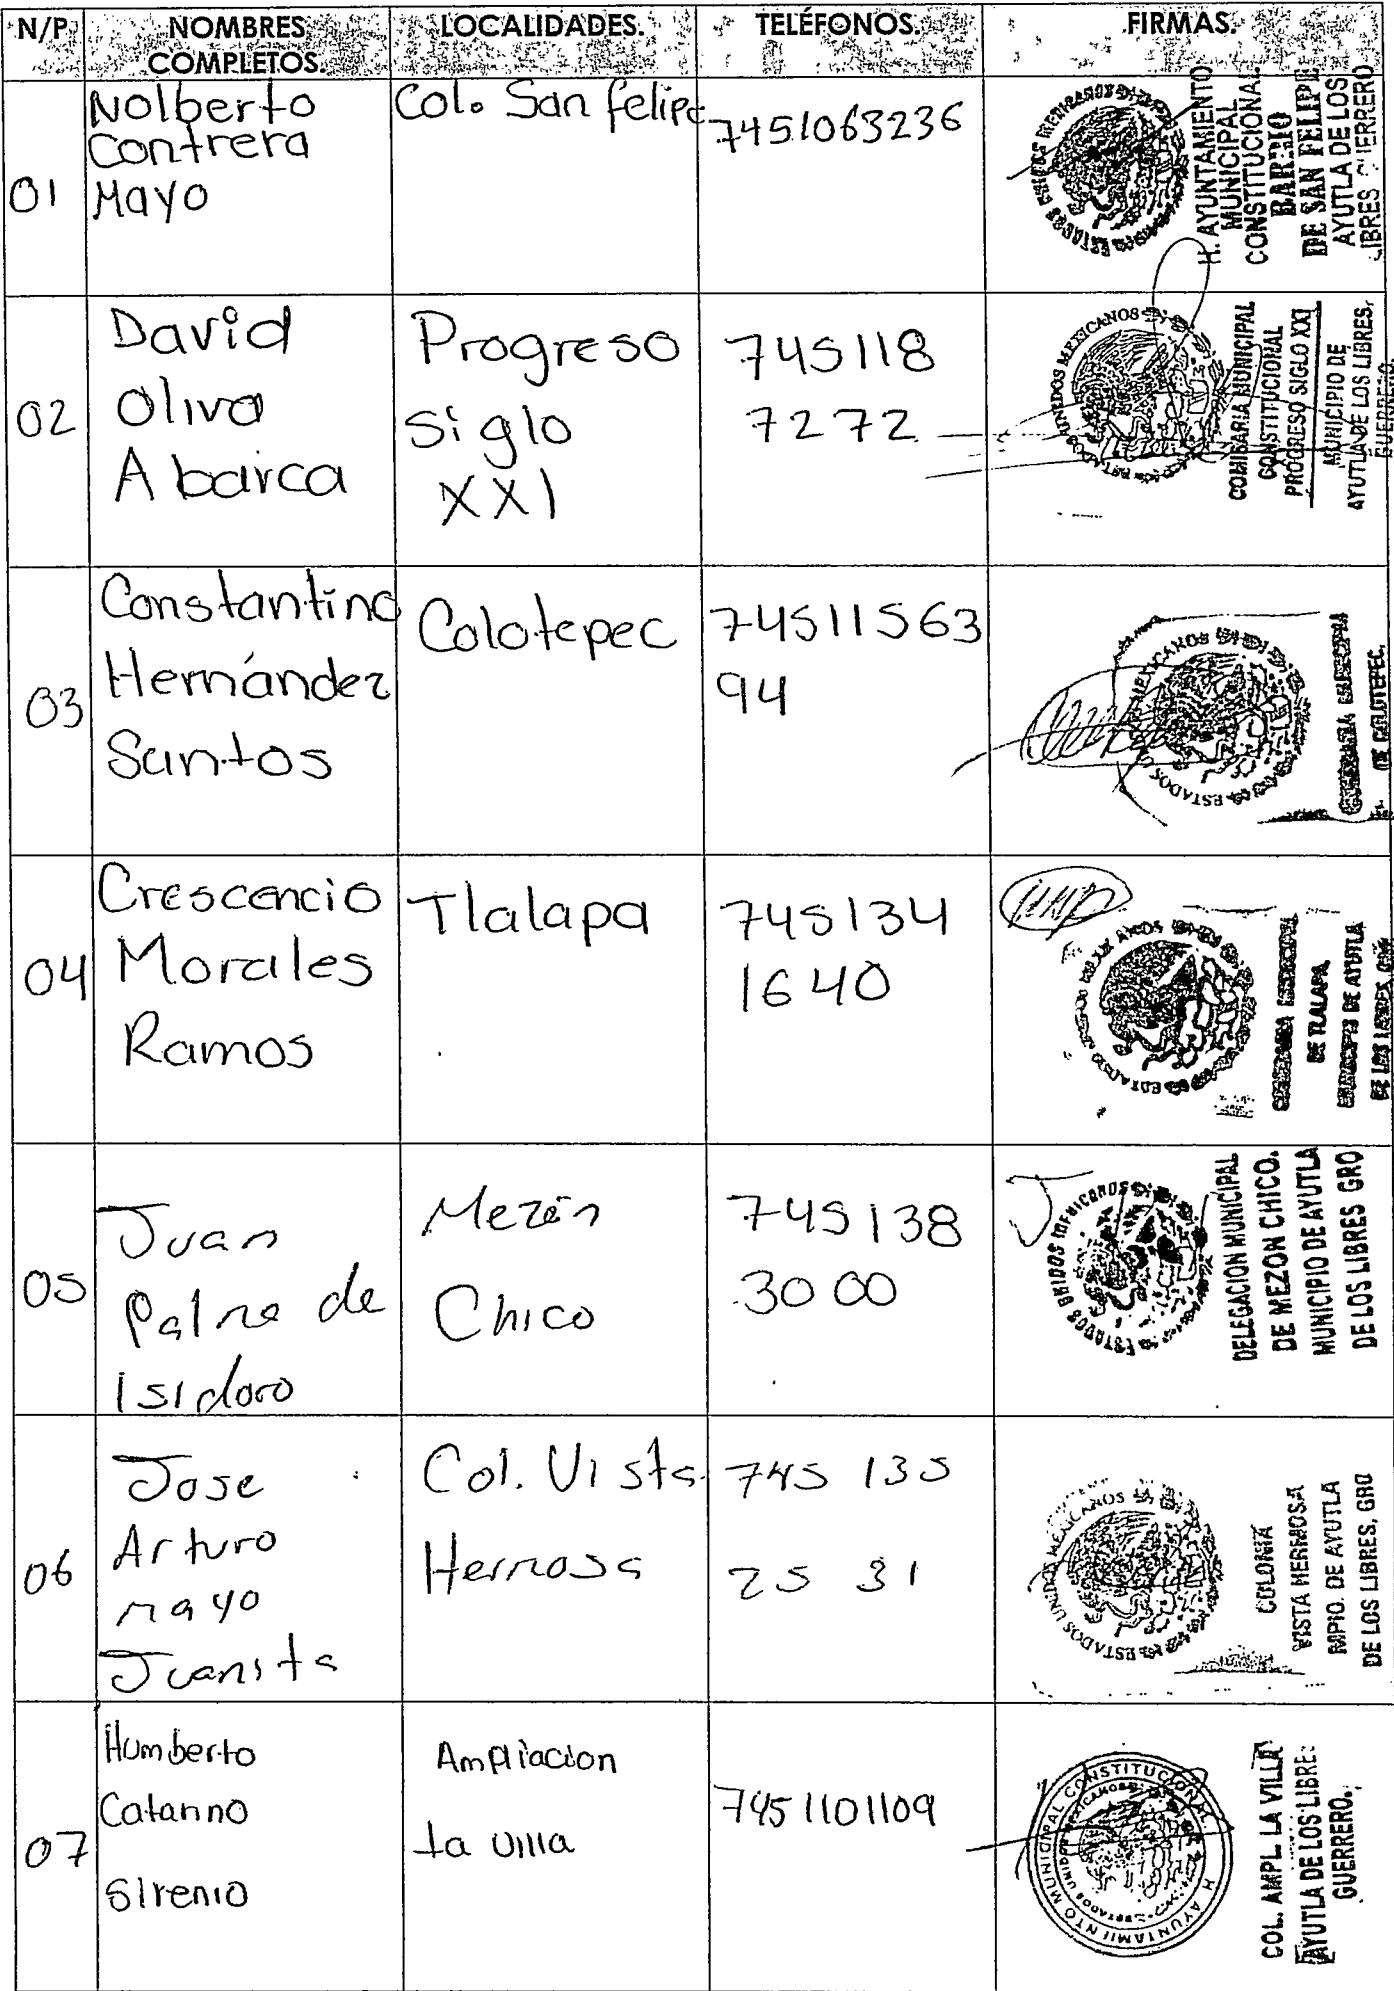 N/P NOMBRES COMPLETOS. LOCALIDADES. TELÉFONOS. FIRMAS.
01
Nolberto
Contrera
Mayo
Col. San felipe
7451063236
ESTADOS UNIDOS MEXICANOS
H. AYUNTAMIENTO
MUNICIPAL
CONSTITUCIONAL
BARRIO
DE SAN FELIPE
AYUTLA DE LOS
LIBRES GUERRERO
02
David
Oliva
Abarca
Progreso
Siglo
XXI
745118
7272
ESTADOS UNIDOS MEXICANOS
COMISARIA MUNICIPAL
CONSTITUCIONAL
PROGRESO SIGLO XXI
MUNICIPIO DE
AYUTLA DE LOS LIBRES,
GUERRERO.
03
Constantino
Hernández
Santos
Colotepec
74511563
94
ESTADOS MEXICANOS
DE COLOTEPEC.
04
Crescencio
Morales
Ramos
Tlalapa
745134
1640
DE TLALAPA,
MUNICIPIO DE AYUTLA
DE LOS LIBRES, GRO
05
Juan
Palma de
Isidoro
Mezón
Chico
745138
3000
ESTADOS UNIDOS MEXICANOS
DELEGACION MUNICIPAL
DE MEZON CHICO.
MUNICIPIO DE AYUTLA
DE LOS LIBRES GRO
06
Jose
Arturo
mayo
Juanita
Col. Vista
Hermosa
745 135
25 31
ESTADOS UNIDOS MEXICANOS
COLONIA
VISTA HERMOSA
MPIO. DE AYUTLA
DE LOS LIBRES, GRO
07
Humberto
Catarino
Sirenio
Ampliacion
La Villa
7451101109
H. AYUNTAMIENTO MUNICIPAL CONSTITUCIONAL
ESTADOS UNIDOS MEXICANOS
COL. AMPL. LA VILLA
AYUTLA DE LOS LIBRES
GUERRERO.